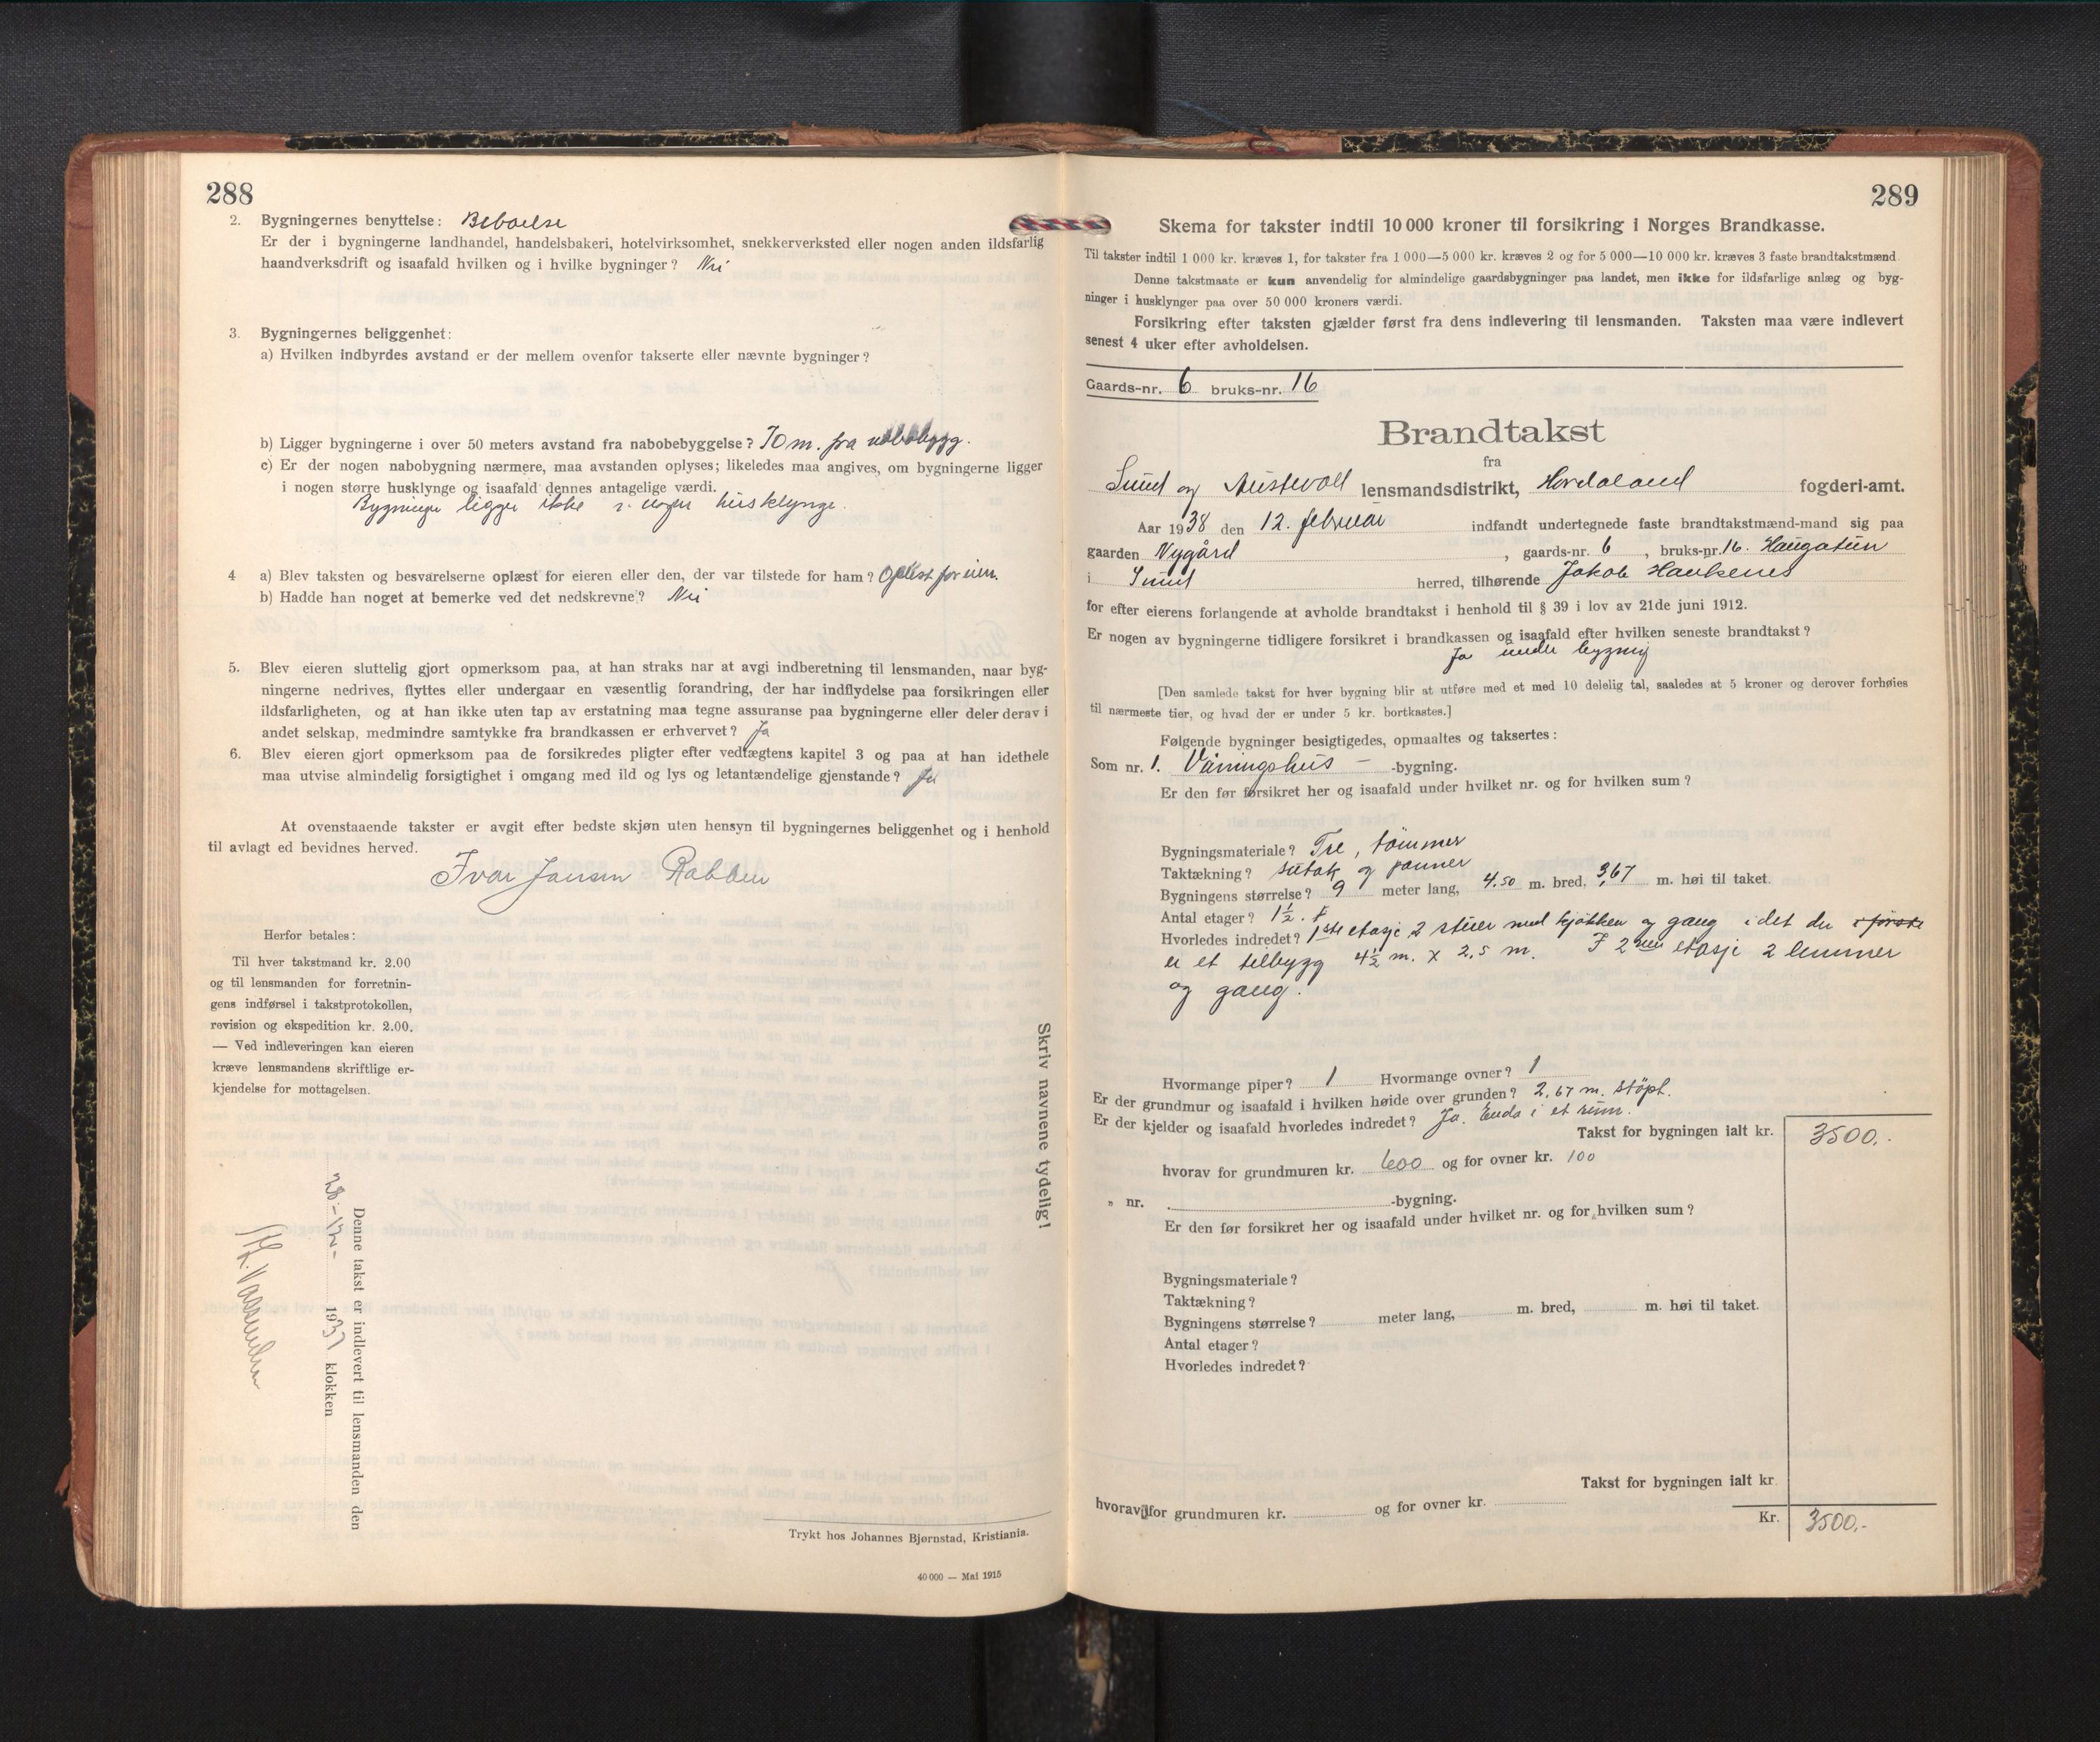 288
2. Bygningernes benyttelse: Beboelse
Er der i bygningerne landhandel, handelsbakeri, hotelvirksomhet, snekkerverksted eller nogen anden ildsfarlig
haandverksdrift og isaafald hvilken og i hvilke bygninger? Nei
3. Bygningernes beliggenhet:
a) Hvilken indbyrdes avstand er der mellem ovenfor takserte eller nævnte bygninger?
b) Ligger bygningerne i over 50 meters avstand fra nabobebyggelse? 70 m. fra nabobygg.
c) Er der nogen nabobygning nærmere, maa avstanden oplyses; likeledes maa angives, om bygningerne ligger
i nogen større husklynge og isaafald dennes antagelige værdi.
Bygninger ligger ikke i nogen husklynge.
4 a) Blev taksten og besvarelserne oplæst for eieren eller den, der var tilstede for ham? Oplest for eien.
b) Hadde han noget at bemerke ved det nedskrevne? Nei
5. Blev eieren sluttelig gjort opmerksom paa, at han straks har at avgi indberetning til lensmanden, naar byg-
ningerne nedrives, flyttes eller undergaar en væsentlig forandring, der har indflydelse paa forsikringen eller
ildsfarligheten, og at han ikke uten tap av erstatning maa tegne assuranse paa bygningerne eller deler derav i
andet selskap, medmindre samtykke fra brandkassen er erhvervet? Ja
6. Blev eieren gjort opmerksom paa de forsikredes pligter efter vedtægtens kapitel 3 og paa at han idethele
maa utvise almindelig forsigtighet i omgang med ild og lys og letantændelige gjenstande? Ja
At ovenstaaende takster er avgit efter bedste skjøn uten hensyn til bygningernes beliggenhet og i henhold
til avlagt ed bevidnes herved.
Ivar Jansen Rabben
Herfor betales:
Til hver takstmand kr. 2.00
og til lensmanden for forretnin-
gens indførsel i takstprotokollen,
revision og ekspedition kr. 2.00.
— Ved indleveringen kan eieren
kræve lensmandens skriftlige er-
kjendelse for mottagelsen.
Skriv navnene tydelig!
Denne takst er indlevert til lensmanden den
28-12- 1937 klokken
Trykt hos Johannes Bjørnstad, Kristiania.
40 000 — Mai 1915
289
Skema for takster indtil 10 000 kroner til forsikring i Norges Brandkasse.
Til takster indtil 1 000 kr. kræves 1, for takster fra 1 000—5 000 kr. kræves 2 og for 5 000—10 000 kr. kræves 3 faste brandtakstmænd
Denne takstmaate er kun anvendelig for almindelige gaardsbygninger paa landet, men ikke for ildsfarlige anlæg og byg-
ninger i husklynger paa over 50 000 kroners værdi.
Forsikring efter taksten gjælder først fra dens indlevering til lensmanden. Taksten maa være indlevert
senest 4 uker efter avholdelsen.
Gaards-nr. 6 bruks-nr. 16
Brandtakst
fra
Sund og Austevoll lensmandsdistrikt, Hordaland fogderi-amt.
Aar 1938 den 12. februar indfandt undertegnede faste brandtakstmænd-mand sig paa
gaarden Nygård, gaards-nr. 6, bruks-nr. 16. Haugatun
i Sund herred, tilhørende Jakob Haukenes
for efter eierens forlangende at avholde brandtakst i henhold til § 39 i lov av 21de juni 1912.
Er nogen av bygningerne tidligere forsikret i brandkassen og isaafald efter hvilken seneste brandtakst?
Ja under bygning
[Den samlede takst for hver bygning blir at utføre med et med 10 delelig tal, saaledes at 5 kroner og derover forhøies
til nærmeste tier, og hvad der er under 5 kr. bortkastes.]
Følgende bygninger besigtigedes, opmaaltes og taksertes:
Som nr. 1. Våningshus - -bygning.
Er den før forsikret her og isaafald under hvilket nr. og for hvilken sum?
Bygningsmateriale? Tre, tømmer
Taktækning? sutak og panner
Bygningens størrelse? 9 meter lang, 4.50 m. bred, 3,67 m. høi til taket.
Antal etager? 1½.
Hvorledes indredet? I 1ste etasje 2 stuer med kjøkken og gang i det der i første
er et tilbygg 4½ m. x 2,5 m. I 2nen etasje 2 lemmer
og gang.
Hvormange piper? 1 Hvormange ovner? 1
Er der grundmur og isaafald i hvilken høide over grunden? 2,67 m. støpt.
Er der kjelder og isaafald hvorledes indredet? Ja. Enda i et rum.
Takst for bygningen ialt kr. 3500.-
hvorav for grundmuren kr. 600 og for ovner kr. 100
„ nr. -bygning.
Er den før forsikret her og isaafald under hvilket nr. og for hvilken sum?
Bygningsmateriale?
Taktækning?
Bygningens størrelse? meter lang, m. bred, m. høi til taket.
Antal etager?
Hvorledes indredet?
Takst for bygningen ialt kr.
hvorav for grundmuren kr. og for ovner kr.
Kr. 3500.-